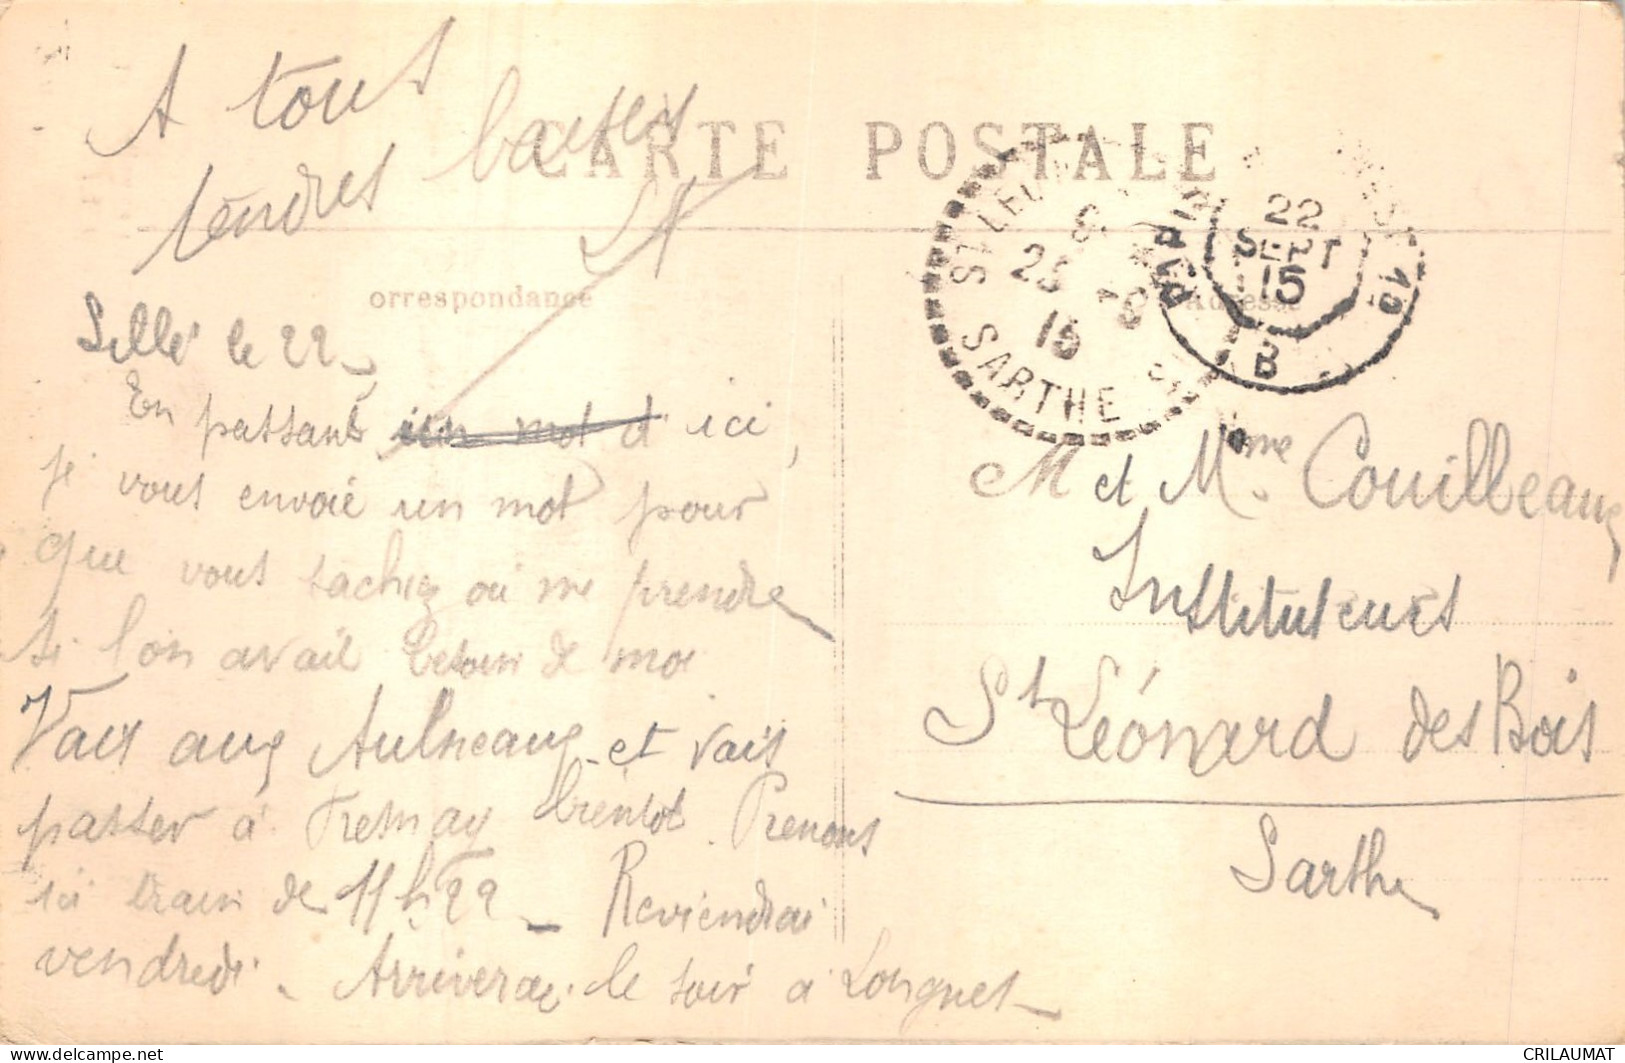 A tous
tendres baisers
CARTE POSTALE
orrespondance
Adresse
Sillé le 22_
En passant un mot d ici,
je vous envoie un mot pour
que vous sachez où me prendre
si l'on avait besoin de moi
Vais aux Aulneaux et vais
passer à Fresnay bientôt. Prenons
ici train de 11h22_ Reviendrai
vendredi. Arriverai le soir à Longnes_
22
SEPT
15
B
25 -9
15
SARTHE
M et Mme Couilleaux
Instituteurs
St Léonard des Bois
Sarthe
CRILAUMAT